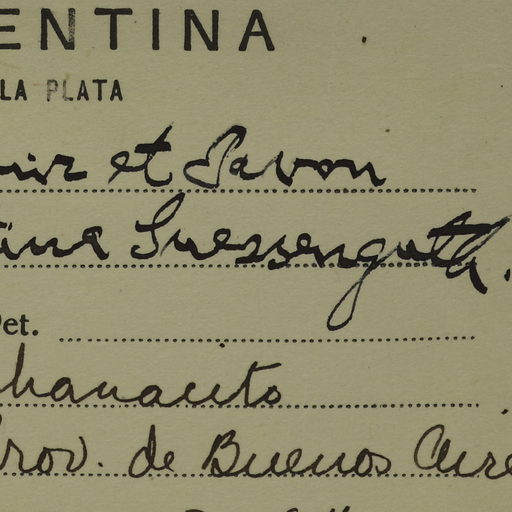 ENTINA
LA PLATA
uiz et Pavon
tina Suessenguth.
Det.
hanauto
Prov. de Buenos Aire